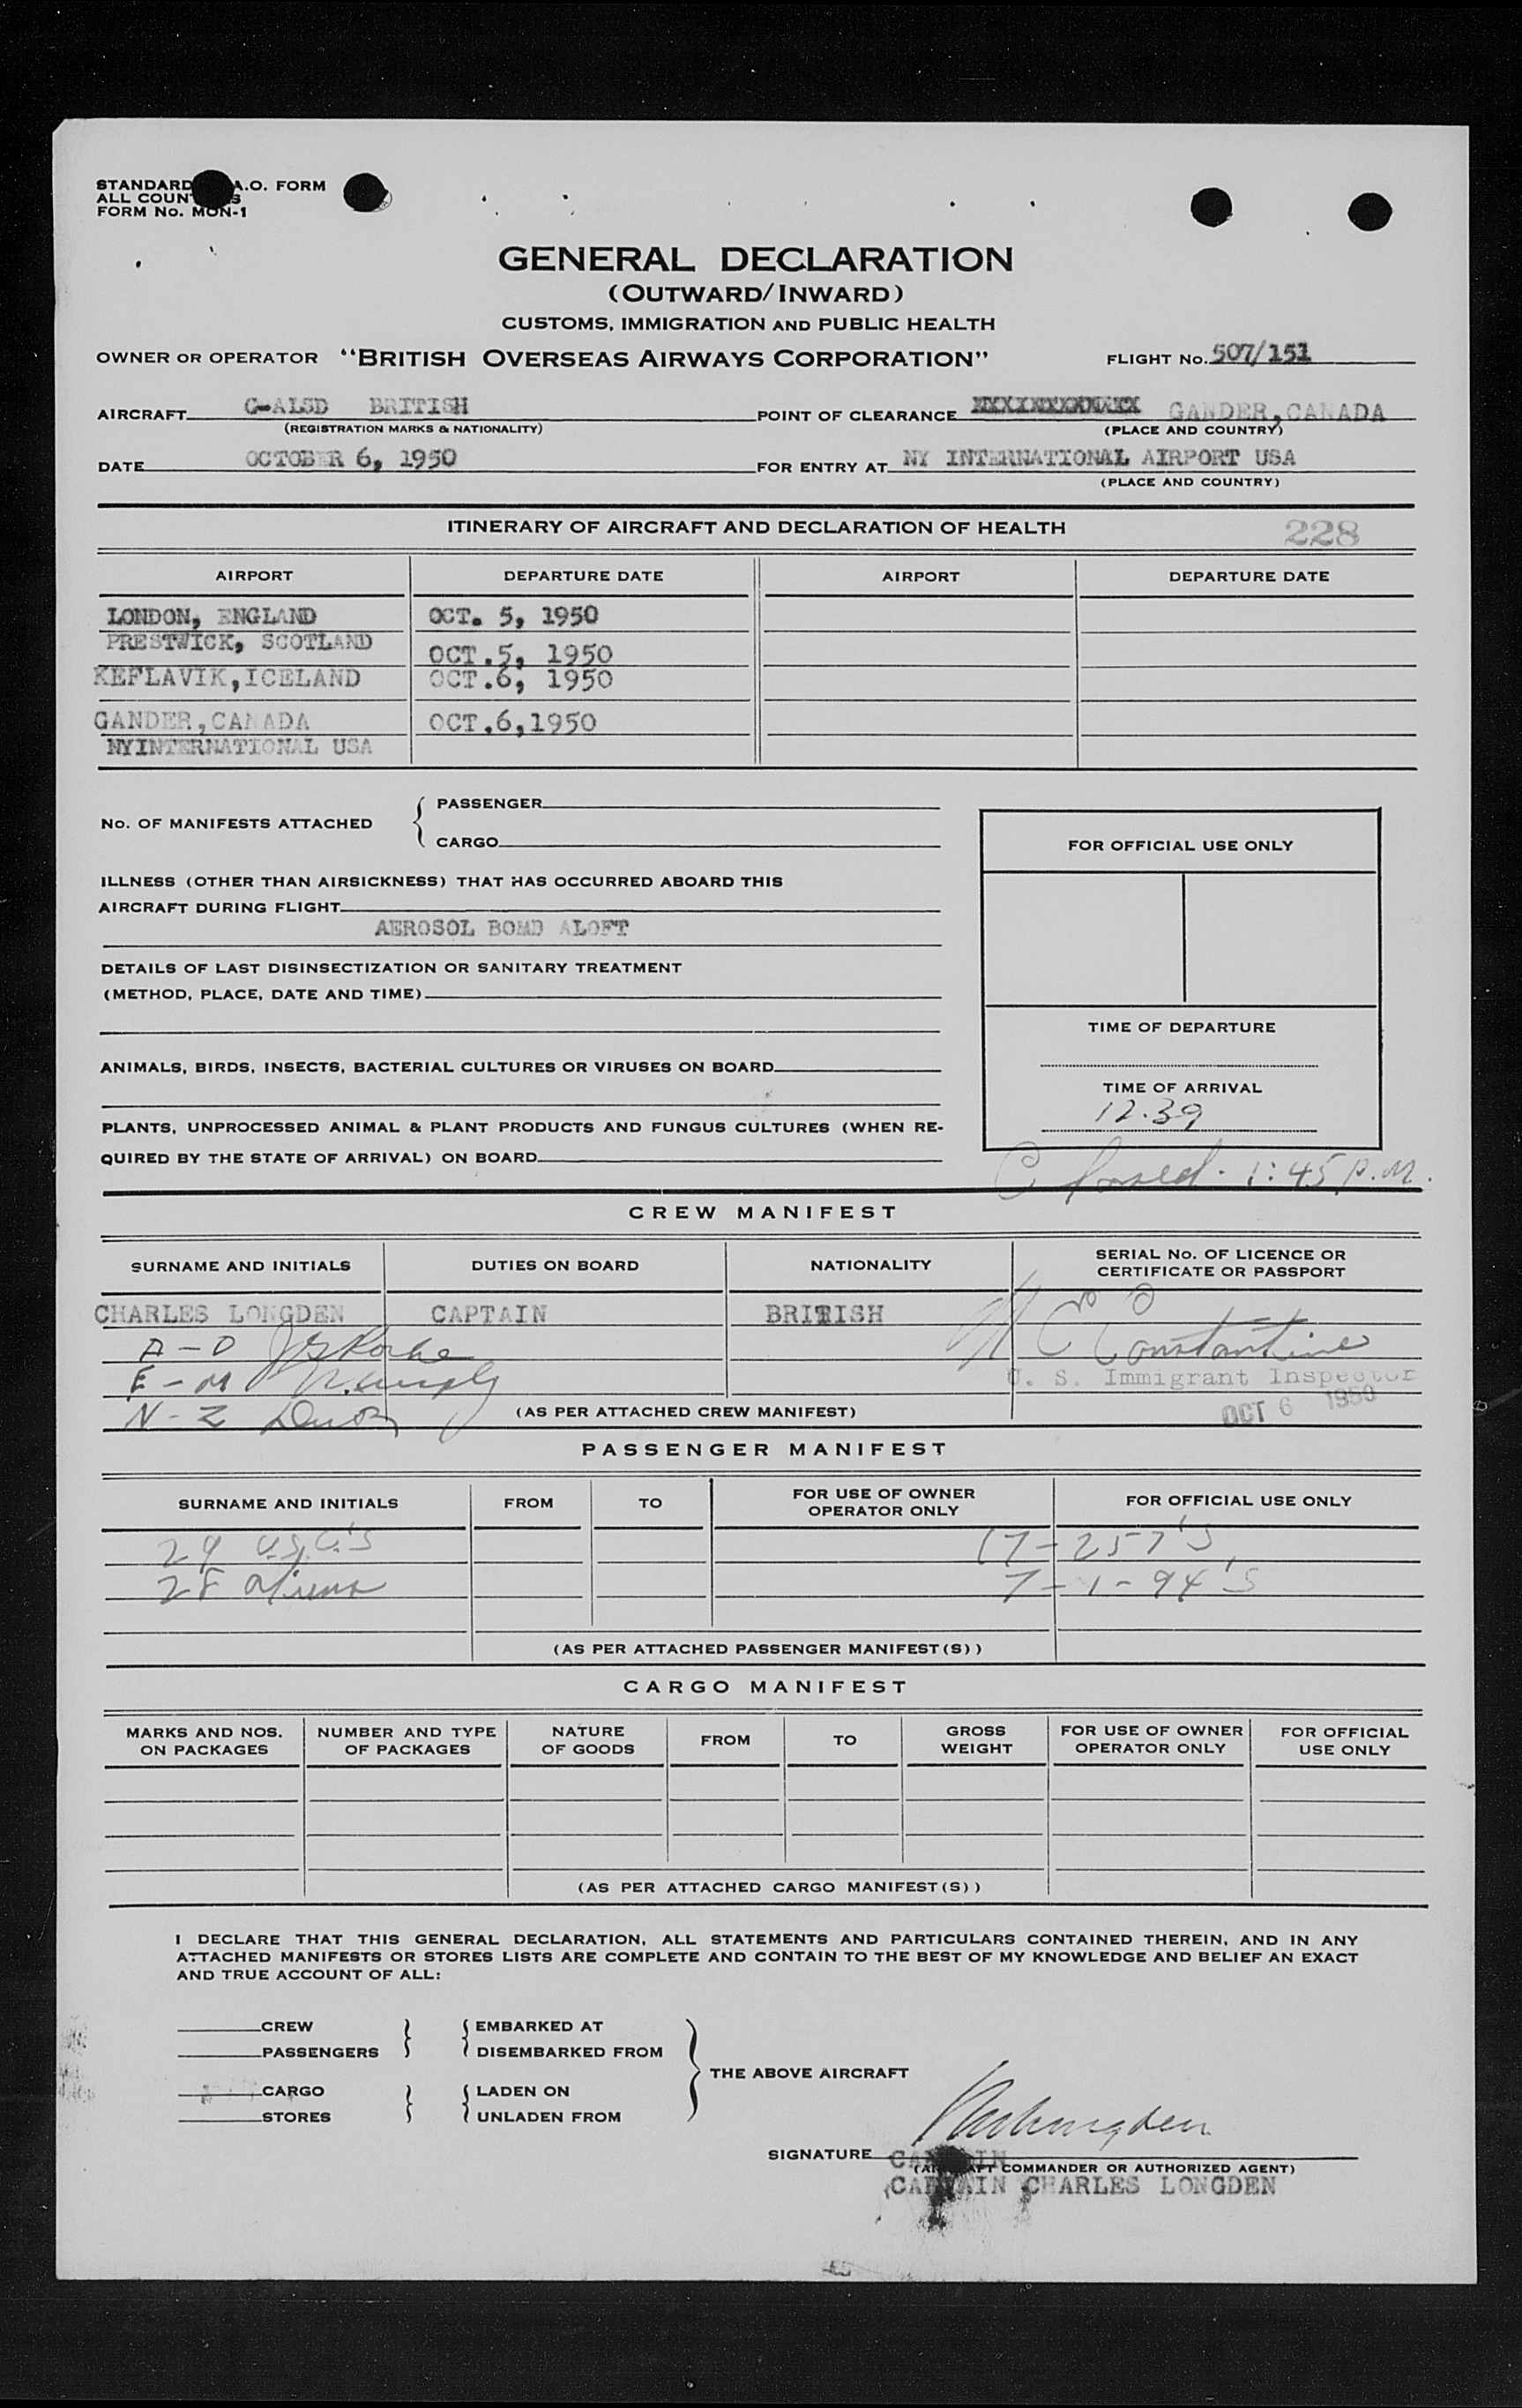 STANDARD A.O. FORM
ALL COUN S
FORM No. MON-1
GENERAL DECLARATION
(OUTWARD/INWARD)
CUSTOMS, IMMIGRATION AND PUBLIC HEALTH
OWNER OR OPERATOR "BRITISH OVERSEAS AIRWAYS CORPORATION" FLIGHT No. 507/151
AIRCRAFT G-ALSD BRITISH POINT OF CLEARANCE GANDER, CANADA
(REGISTRATION MARKS & NATIONALITY) (PLACE AND COUNTRY)
DATE OCTOBER 6, 1950 FOR ENTRY AT NY INTERNATIONAL AIRPORT USA
(PLACE AND COUNTRY)
ITINERARY OF AIRCRAFT AND DECLARATION OF HEALTH 228
AIRPORT DEPARTURE DATE AIRPORT DEPARTURE DATE
LONDON, ENGLAND OCT. 5, 1950
PRESTWICK, SCOTLAND OCT.5, 1950
KEFLAVIK,ICELAND OCT.6, 1950
GANDER,CANADA OCT.6,1950
NYINTERNATIONAL USA
No. OF MANIFESTS ATTACHED { PASSENGER
CARGO
FOR OFFICIAL USE ONLY
ILLNESS (OTHER THAN AIRSICKNESS) THAT HAS OCCURRED ABOARD THIS
AIRCRAFT DURING FLIGHT
AEROSOL BOMD ALOFT
DETAILS OF LAST DISINSECTIZATION OR SANITARY TREATMENT
(METHOD, PLACE, DATE AND TIME)
TIME OF DEPARTURE
ANIMALS, BIRDS, INSECTS, BACTERIAL CULTURES OR VIRUSES ON BOARD
TIME OF ARRIVAL
12.39
PLANTS, UNPROCESSED ANIMAL & PLANT PRODUCTS AND FUNGUS CULTURES (WHEN RE-
QUIRED BY THE STATE OF ARRIVAL) ON BOARD
Closed. 1:45 P.M.
CREW MANIFEST
SURNAME AND INITIALS DUTIES ON BOARD NATIONALITY SERIAL No. OF LICENCE OR
CERTIFICATE OR PASSPORT
CHARLES LONGDEN CAPTAIN BRITISH
A - D Constantine
E - M U. S. Immigrant Inspector
N - Z (AS PER ATTACHED CREW MANIFEST) OCT 6 1950
PASSENGER MANIFEST
SURNAME AND INITIALS FROM TO FOR USE OF OWNER
OPERATOR ONLY FOR OFFICIAL USE ONLY
29 U.S.C.'S 17 - 257's
28 aliens 7 - 1-94's
(AS PER ATTACHED PASSENGER MANIFEST(S))
CARGO MANIFEST
MARKS AND NOS.
ON PACKAGES NUMBER AND TYPE
OF PACKAGES NATURE
OF GOODS FROM TO GROSS
WEIGHT FOR USE OF OWNER
OPERATOR ONLY FOR OFFICIAL
USE ONLY
(AS PER ATTACHED CARGO MANIFEST(S))
I DECLARE THAT THIS GENERAL DECLARATION, ALL STATEMENTS AND PARTICULARS CONTAINED THEREIN, AND IN ANY
ATTACHED MANIFESTS OR STORES LISTS ARE COMPLETE AND CONTAIN TO THE BEST OF MY KNOWLEDGE AND BELIEF AN EXACT
AND TRUE ACCOUNT OF ALL:
CREW EMBARKED AT
PASSENGERS DISEMBARKED FROM
THE ABOVE AIRCRAFT
CARGO LADEN ON
STORES UNLADEN FROM
SIGNATURE
(AIRCRAFT COMMANDER OR AUTHORIZED AGENT)
CAPTAIN CHARLES LONGDEN